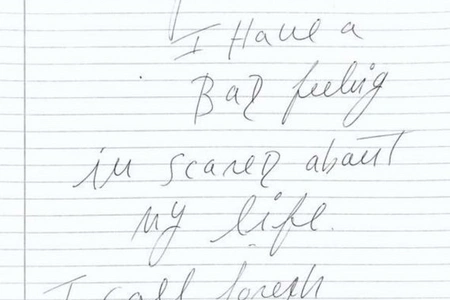 I Have a
Bad feeling
im scared about
my life.
I call